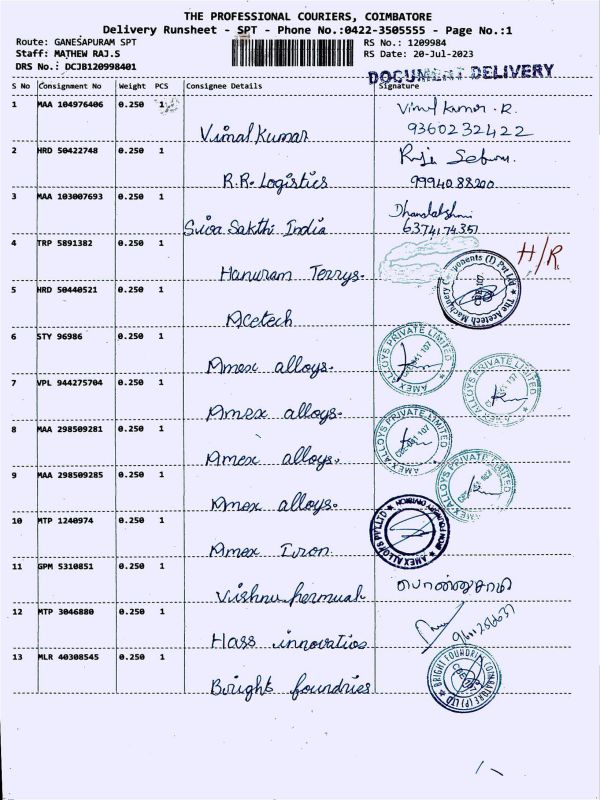 THE PROFESSIONAL COURIERS, COIMBATORE
Delivery Runsheet - SPT - Phone No.:0422-3505555 - Page No.:1
Route: GANESAPURAM SPT RS No.: 1209984
Staff: MATHEW RAJ.S RS Date: 20-Jul-2023
DRS No.: DCJB120998401
DOCUMENT DELIVERY
S No Consignment No Weight PCS Consignee Details Signature
1 MAA 104976406 0.250 1 Vimal Kumar Vimal Kumar. R.
9360232422
2 HRD 50422748 0.250 1 R.R. Logistics
9994088200
3 MAA 103007693 0.250 1 Siva Sakthi India Dhanalakshmi
6374174351
4 TRP 5891382 0.250 1 Hanuram Terrys. H/R
5 HRD 50440521 0.250 1 Acetech
The Acetech Machinery Components (I) Pvt Ltd
6 STY 96986 0.250 1 Amex alloys.
AMEX ALLOYS PRIVATE LIMITED
7 VPL 944275704 0.250 1 Amex alloys.
AMEX ALLOYS PRIVATE LIMITED
8 MAA 298509281 0.250 1 Amex alloys.
AMEX ALLOYS PRIVATE LIMITED
9 MAA 298509285 0.250 1 Amex alloys.
AMEX ALLOYS PRIVATE LIMITED
10 MTP 1240974 0.250 1 Amex Iron.
AMEX ALLOYS PVT LTD IRON FOUNDRY DIVISION
11 GPM 5310851 0.250 1 Vishnu permual பொன்னுசாமி
12 MTP 3046880 0.250 1 Hass innovatios
13 MLR 40308545 0.250 1 Bright foundries